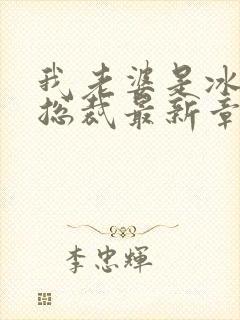 我老婆是冰
总裁最新章
李忠輝